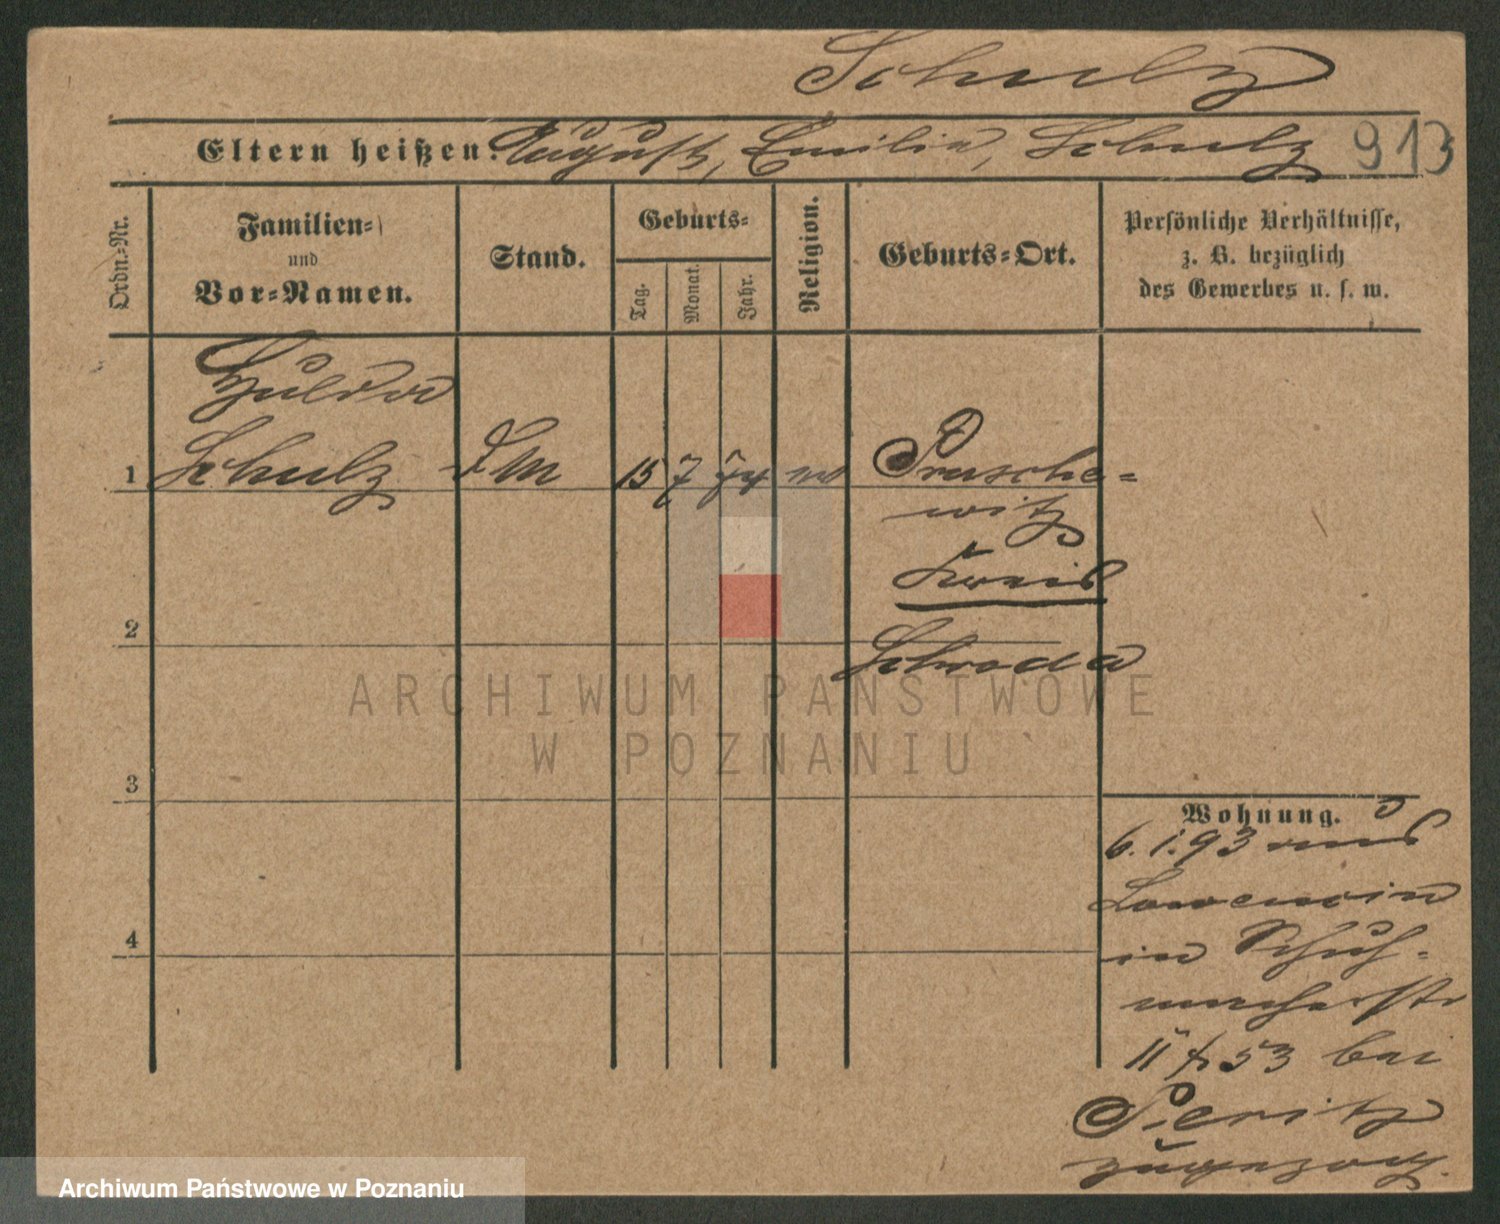 Schulz
Eltern heißen: August, Emilie, Schulz 913
Ordn.-Nr.
Familien-
und
Vor-Namen.
Stand.
Geburts-
Tag.
Monat.
Jahr.
Religion.
Geburts-Ort.
Persönliche Verhältnisse,
z. B. bezüglich
des Gewerbes u. s. w.
Hulda
1 Schulz DM 15 7 74
witz
Kreis
2
Schroda
3
4
Wohnung.
6. 1. 93 aus
in Schuh-
macherstr
11 53 bei
zugezog.
ARCHIWUM PAŃSTWOWE
W POZNANIU
Archiwum Państwowe w Poznaniu